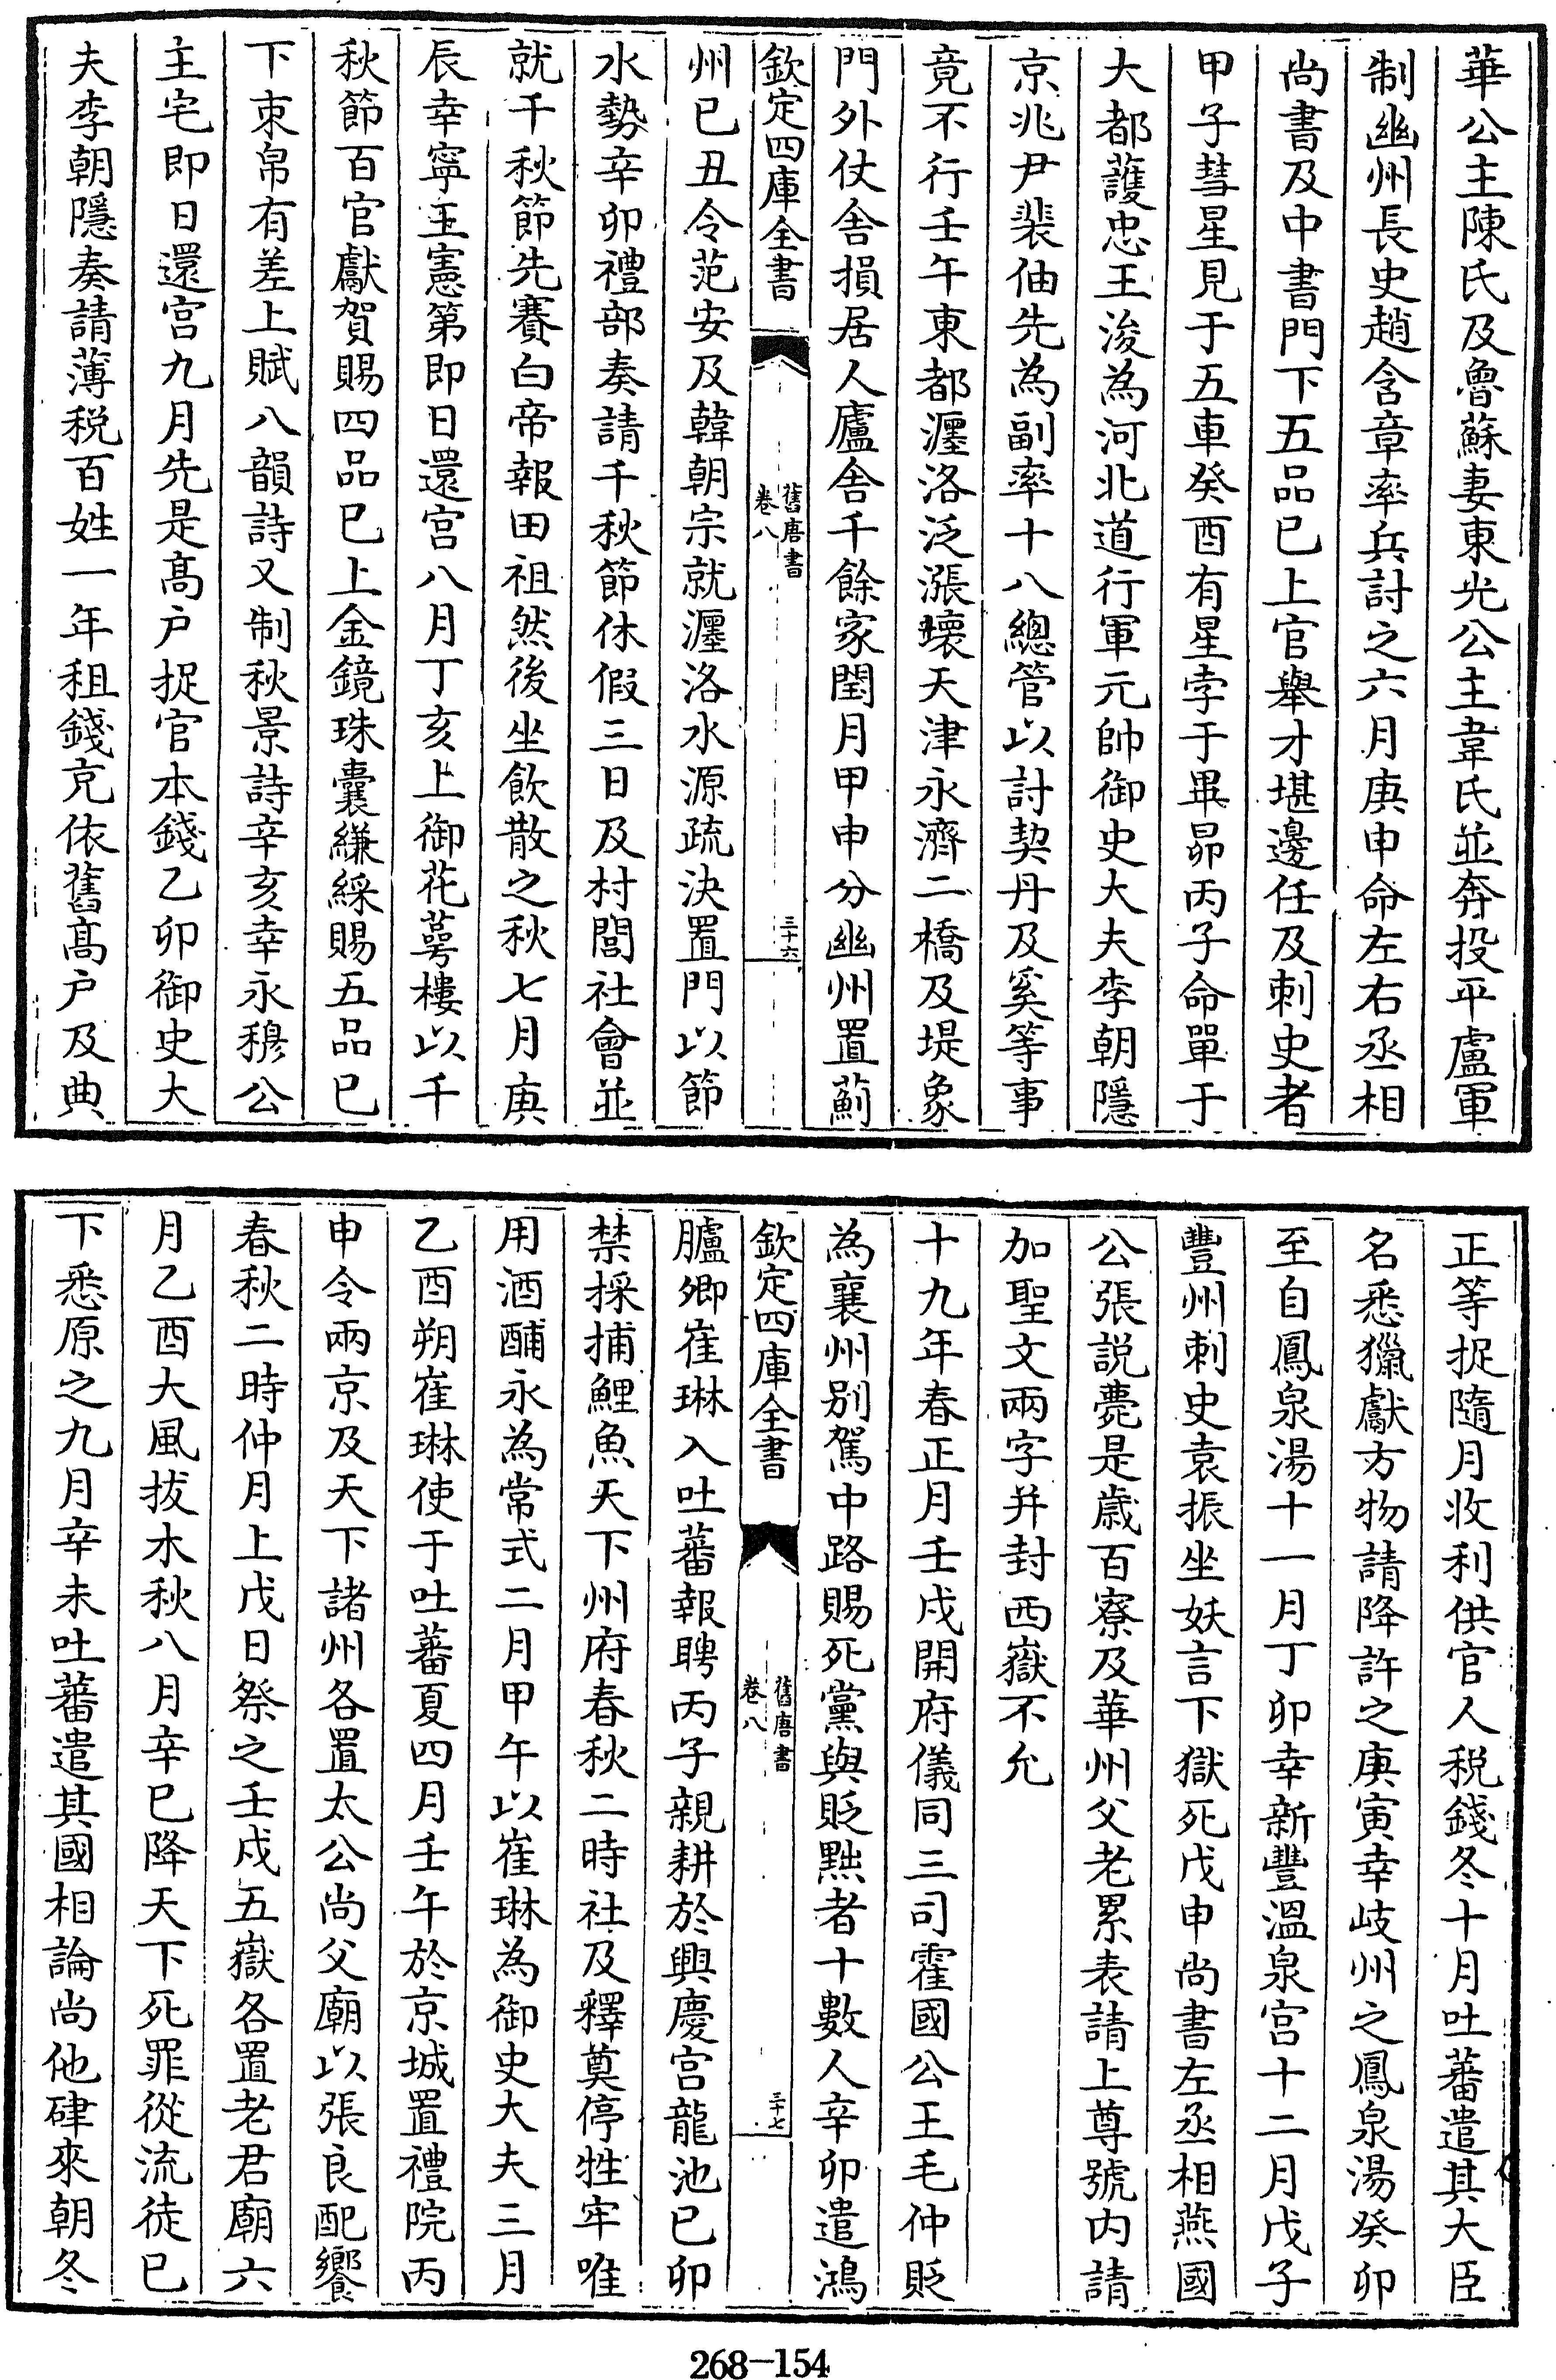 華公主陳氏及魯蘇妻東光公主韋氏並奔投平盧軍
制幽州長史趙含章率兵討之六月庚申命左右丞相
尚書及中書門下五品已上官舉才堪邊任及刺史者
甲子彗星見于五車癸酉有星孛于畢昴丙子命單于
大都護忠王浚為河北道行軍元帥御史大夫李朝隱
京兆尹裴伷先為副率十八總管以討契丹及奚等事
竟不行壬午東都瀍洛泛漲壞天津永濟二橋及堤象
門外仗舍損居人廬舍千餘家閏月甲申分幽州置薊
欽定四庫全書
舊唐書
卷八
三十六
州已丑令范安及韓朝宗就瀍洛水源疏決置門以節
水勢辛卯禮部奏請千秋節休假三日及村閭社會並
就千秋節先賽白帝報田祖然後坐飲散之秋七月庚
辰幸寧王憲第即日還宮八月丁亥上御花萼樓以千
秋節百官獻賀賜四品已上金鏡珠囊縑綵賜五品已
下束帛有差上賦八韻詩又制秋景詩辛亥幸永穆公
主宅即日還宮九月先是髙戸捉官本錢乙卯御史大
夫李朝隱奏請薄稅百姓一年租錢充依舊髙戸及典
正等捉隨月收利供官人稅錢冬十月吐蕃遣其大臣
名悉獵獻方物請降許之庚寅幸岐州之鳳泉湯癸卯
至自鳳泉湯十一月丁卯幸新豐溫泉宮十二月戊子
豐州刺史袁振坐妖言下獄死戊申尚書左丞相燕國
公張説薨是歲百寮及華州父老累表請上尊號内請
加聖文兩字并封西嶽不允
十九年春正月壬戌開府儀同三司霍國公王毛仲貶
為襄州别駕中路賜死黨與貶黜者十數人辛卯遣鴻
欽定四庫全書
舊唐書
卷八
三十七
臚卿崔琳入吐蕃報聘丙子親耕於興慶宮龍池已卯
禁採捕鯉魚天下州府春秋二時社及釋奠停牲牢唯
用酒酺永為常式二月甲午以崔琳為御史大夫三月
乙酉朔崔琳使于吐蕃夏四月壬午於京城置禮院丙
申令兩京及天下諸州各置太公尚父廟以張良配饗
春秋二時仲月上戊日祭之壬戌五嶽各置老君廟六
月乙酉大風拔木秋八月辛巳降天下死罪從流徒已
下悉原之九月辛未吐蕃遣其國相論尚他硉來朝冬
268-154